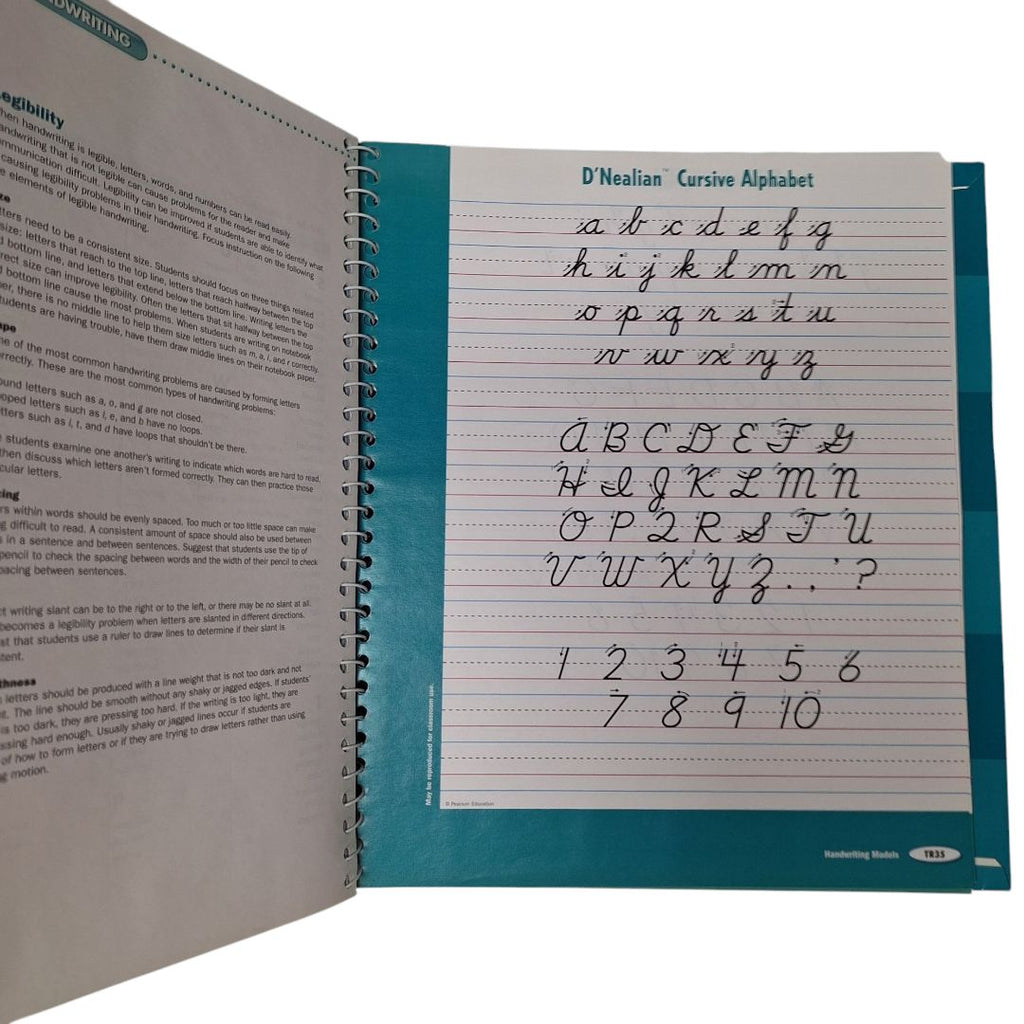 HANDWRITING
Legibility
When handwriting is legible, letters, words, and numbers can be read easily.
Handwriting that is not legible can cause problems for the reader and make
communication difficult. Legibility can be improved if students are able to identify what
causing legibility problems in their handwriting. Focus instruction on the following
elements of legible handwriting.
letters need to be a consistent size. Students should focus on three things related
size: letters that reach to the top line, letters that reach halfway between the top
bottom line, and letters that extend below the bottom line. Writing letters the
correct size can improve legibility. Often the letters that sit halfway between the top
bottom line cause the most problems. When students are writing on notebook
there is no middle line to help them size letters such as m, a, i, and r correctly.
students are having trouble, have them draw middle lines on their notebook paper.
of the most common handwriting problems are caused by forming letters
These are the most common types of handwriting problems:
round letters such as a, o, and g are not closed.
looped letters such as l, e, and b have no loops.
letters such as i, t, and d have loops that shouldn't be there.
students examine one another's writing to indicate which words are hard to read,
then discuss which letters aren't formed correctly. They can then practice those
letters.
within words should be evenly spaced. Too much or too little space can make
difficult to read. A consistent amount of space should also be used between
in a sentence and between sentences. Suggest that students use the tip of
pencil to check the spacing between words and the width of their pencil to check
spacing between sentences.
writing slant can be to the right or to the left, or there may be no slant at all.
becomes a legibility problem when letters are slanted in different directions.
that students use a ruler to draw lines to determine if their slant is
letters should be produced with a line weight that is not too dark and not
The line should be smooth without any shaky or jagged edges. If students'
is too dark, they are pressing too hard. If the writing is too light, they are
hard enough. Usually shaky or jagged lines occur if students are
of how to form letters or if they are trying to draw letters rather than using
motion.
D'Nealian™ Cursive Alphabet
a b c d e f g
h i j k l m n
o p q r s t u
v w x y z
A B C D E F G
H I J K L M N
O P Q R S T U
V W X Y Z . , ' ?
1 2 3 4 5 6
7 8 9 10
May be reproduced for classroom use.
© Pearson Education
Handwriting Models TR35